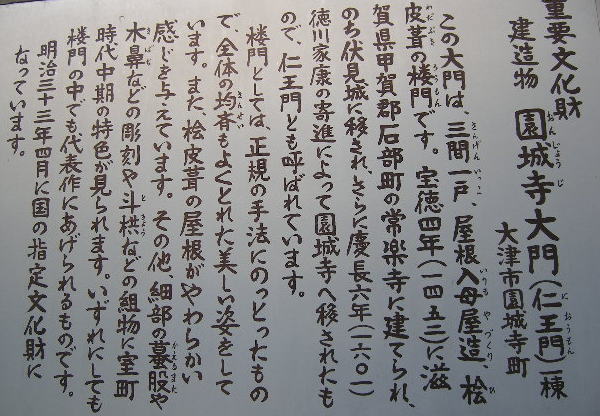 重要文化財
建造物 園城寺大門(仁王門)一棟
おんじょうじ
におうもん
大津市園城寺町
この大門は、三間一戸、屋根入母屋造、桧
さんげんいっこ
いりもやづくり
ひ
皮葺の楼門です。宝徳四年(一四五二)に滋
わだぶき
ろうもん
賀県甲賀郡石部町の常楽寺に建てられ、
のち伏見城に移され、さらに慶長六年(一六〇一)
徳川家康の寄進によって園城寺へ移されたも
ので、仁王門とも呼ばれています。
楼門としては、正規の手法にのっとったもの
で、全体の均斉もよくとれた美しい姿をして
きんせい
います。また、桧皮葺の屋根がやわらかい
感じを与えています。その他、細部の蟇股や
かえるまた
木鼻などの彫刻や斗栱などの組物に室町
きばな
ときょう
時代中期の特色が見られます。いずれにしても
楼門の中でも代表作にあげられるものです。
明治三十三年四月に国の指定文化財に
なっています。